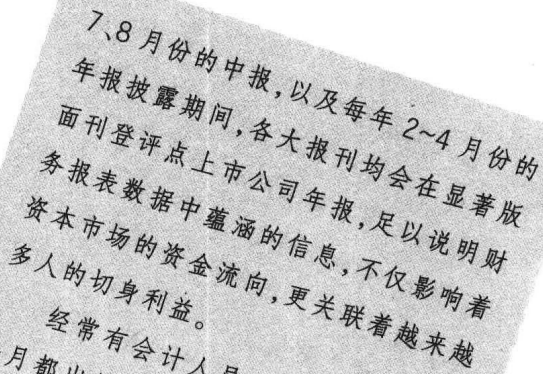 7、8月份的中报,以及每年2~4月份的
年报披露期间,各大报刊均会在显著版
面刊登评点上市公司年报,足以说明财
务报表数据中蕴涵的信息,不仅影响着
资本市场的资金流向,更关联着越来越
多人的切身利益。
经常有会计人
月都